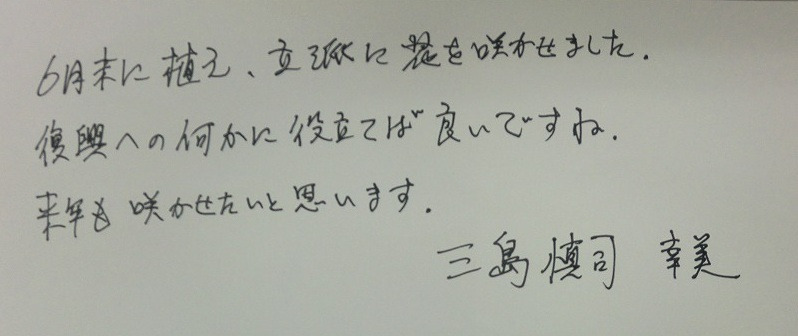 6月末に植え、立派に花を咲かせました.
復興への何かに役立てば良いですね.
来年も咲かせたいと思います.
三島慎司 幸美